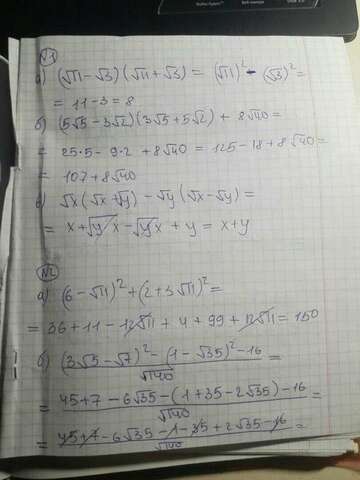 №1
а) (√11 − √3)(√11 + √3) = (√11)² − (√3)² =
= 11 − 3 = 8
б) (5√5 − 3√2)(3√5 + 5√2) + 8√40 =
= 25·5 − 9·2 + 8√40 = 125 − 18 + 8√40 =
= 107 + 8√40
в) √x(√x + √y) − √y(√x − √y) =
= x + √y x − √y x + y = x + y
№2
а) (6 − √11)² + (2 + 3√11)² =
= 36 + 11 − 12√11 + 4 + 99 + 12√11 = 150
б) (3√5 − √7)² − (1 − √35)² − 16 =
√140
= 45 + 7 − 6√35 − (1 + 35 − 2√35) − 16 =
√140
= 45 + 7 − 6√35 − 1 − 35 + 2√35 − 16 =
√140